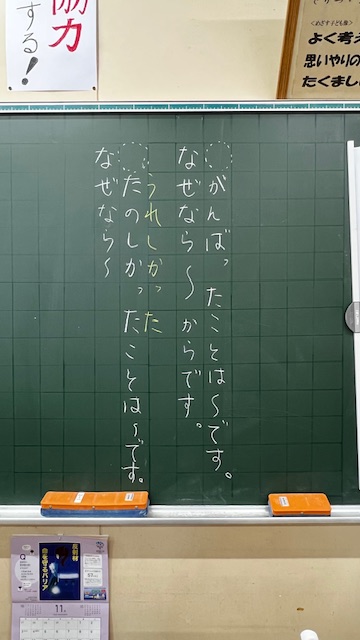 協力
する！
〈めざす子ども像〉
よく考え
思いやりの
たくまし
がんばったことは〜です。
なぜなら〜からです。
うれしかった
たのしかったことは〜です。
なぜなら〜
圧倒的
11